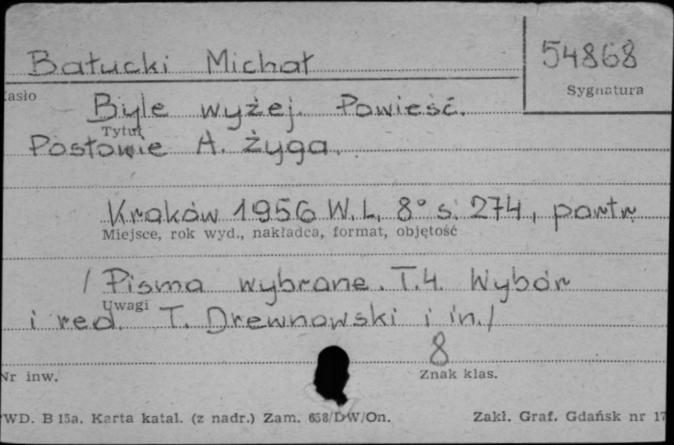 Bałucki Michał
54868
Hasło
Sygnatura
Byle wyżej. Powieść.
Tytuł
Posłowie A. Żyga.
Kraków 1956 W.L. 8° s. 274, portr
Miejsce, rok wyd., nakładca, format, objętość
/Pisma wybrane. T.4. Wybór
Uwagi
i red. T. Drewnowski i in./
8
Nr inw.
Znak klas.
WD. B 15a. Karta katal. (z nadr.) Zam. 658/DW/On.
Zakł. Graf. Gdańsk nr 17